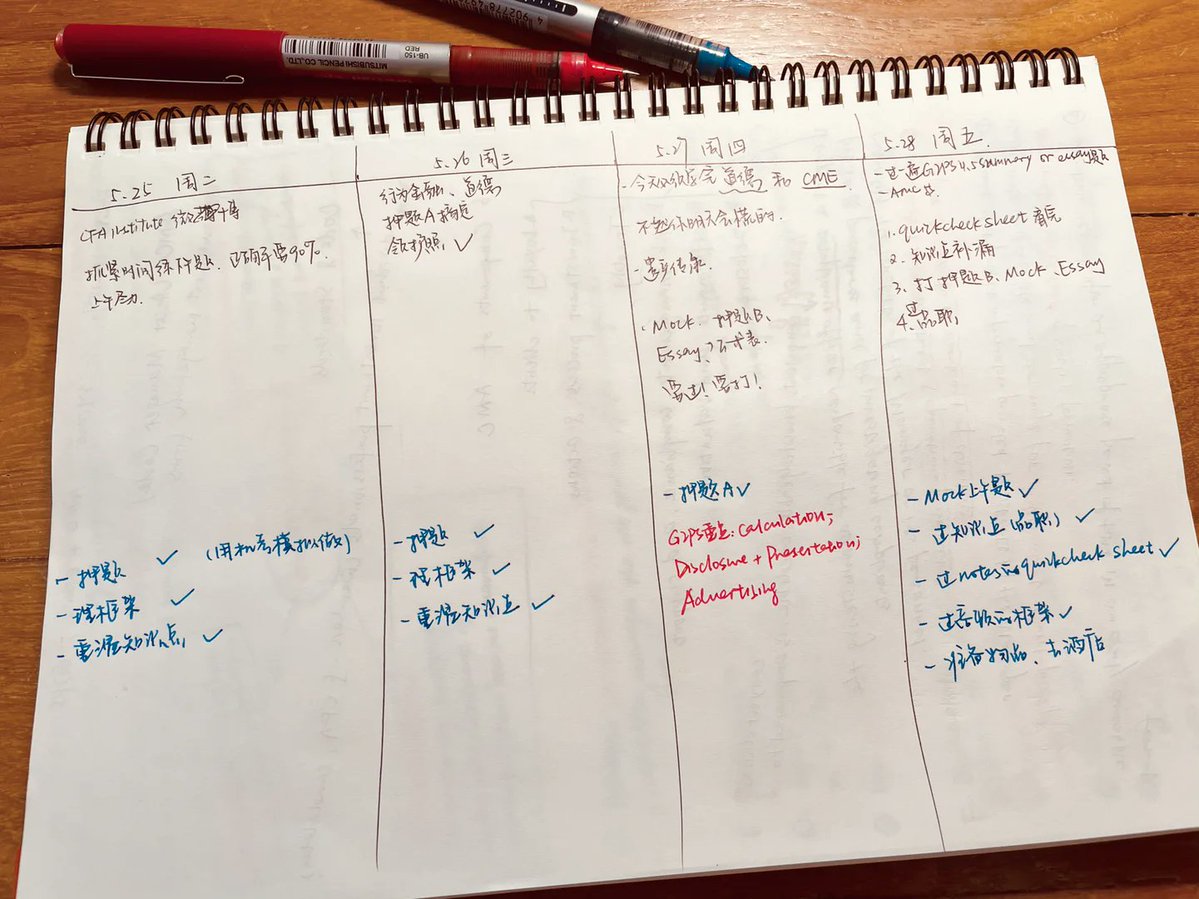 UB-150
RED
MITSUBISHI PENCIL CO.,LTD.
5.25 周二
CFA institute
抓紧时间练下午题,正确率要90%.
上午尽力.
- 押题 ✓ (用机考模拟做)
- 理框架 ✓
- 重温知识点 ✓
5.26 周三
行为金融、道德
押题A搞定
领护照 ✓
- 押题 ✓
- 理框架 ✓
- 重温知识点 ✓
5.27 周四
- 今天必须学完道德和CME.
不然你明天会慌的.
. Mock. 押题B、
Essay
要过!要打!
- 押题A ✓
GIPS重点: Calculation;
Disclosure + Presentation;
Advertising
5.28 周五.
- 过一遍GIPS 4.5 summary or essay题
- AMC
1. quickcheck sheet 看完
2. 知识点补漏
3. 打押题B、Mock、Essay
4. 过品职
- Mock上午题 ✓
- 过知识点(品职) ✓
- 过notes和quickcheck sheet ✓
- 过各章的框架 ✓
- 准备物品、去酒店